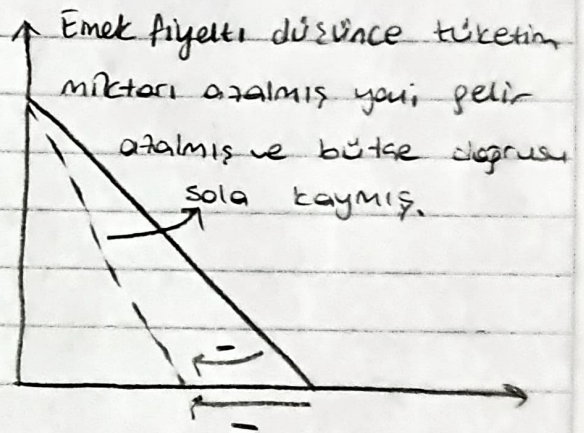 Emek fiyatı düşünce tüketim
miktarı azalmış yani gelir
azalmış ve bütçe doğrusu
sola kaymış.
-
-